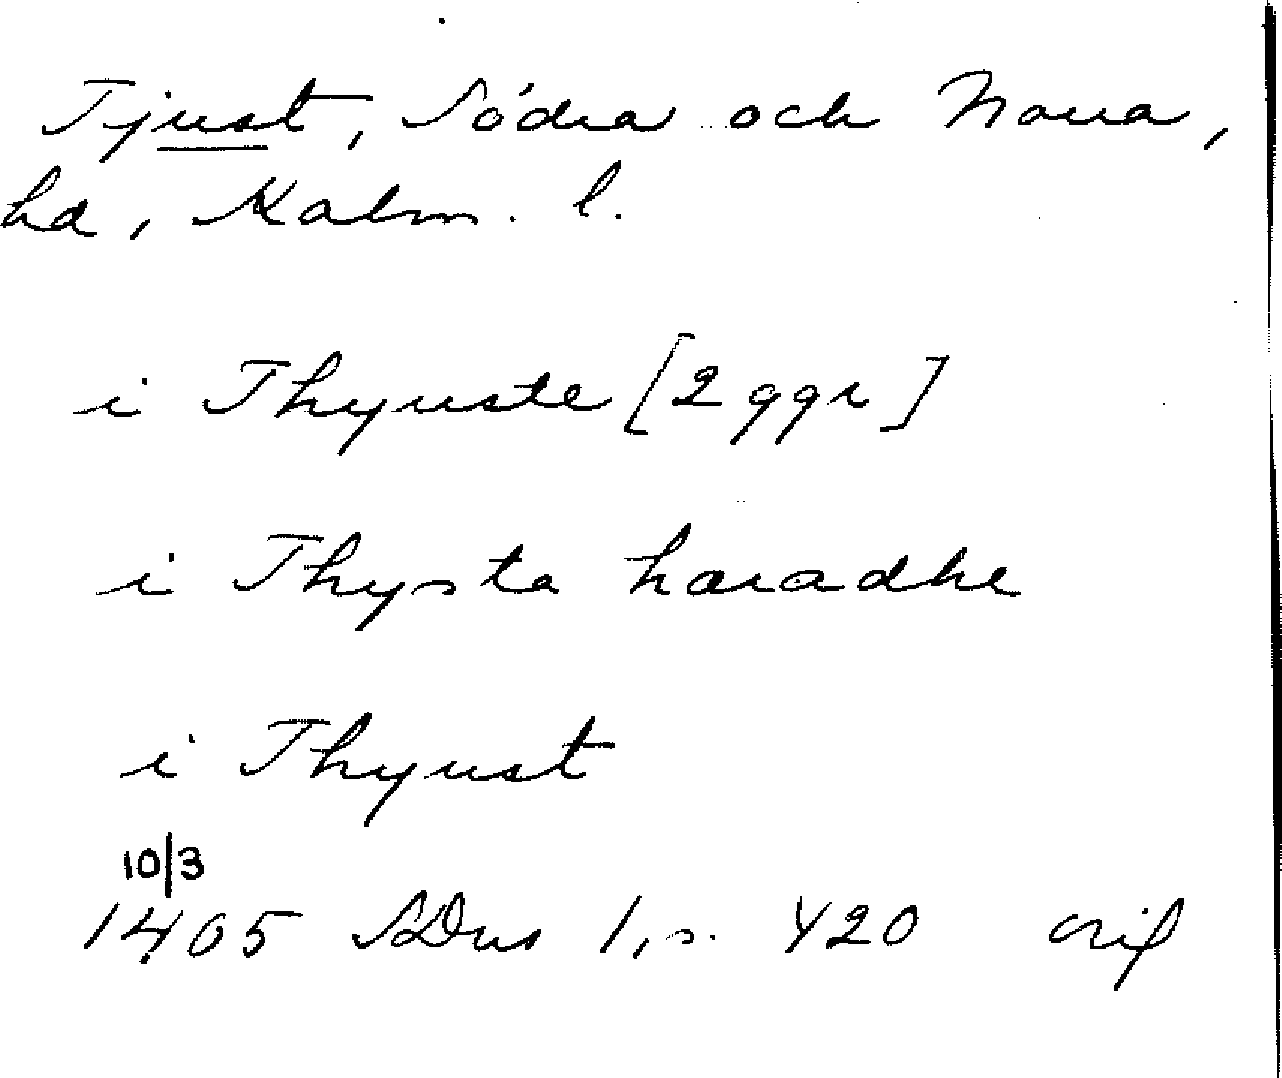 Tjust, Södra och Norra,
hd, Kalm. l.
i Thyuste [2 ggr]
i Thysta haradhe
i Thyust
10/3
1405 SDns 1, s. 420 orig